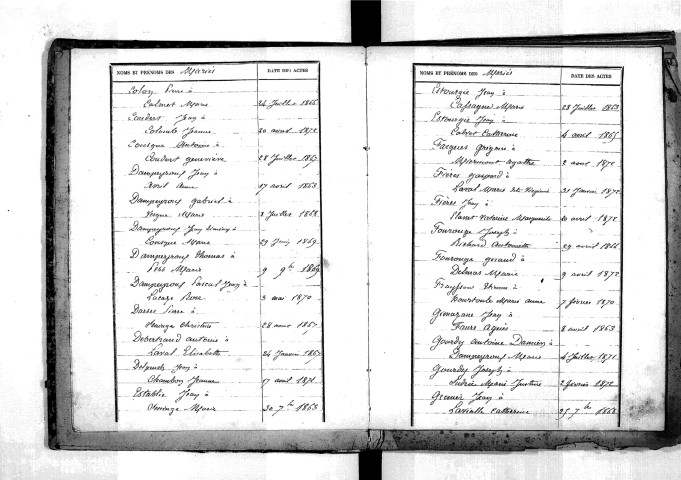 NOMS ET PRÉNOMS DES Mariés DATE DES ACTES
Pierre à
Calmet Marie 24 Juillet 1866
Coudert Jean à
Colomb Jeanne 20 avril 1872
Antoine à
Coudert geneviève 28 Juillet 1867
Dampeyrous Jean à
Avril Anne 17 avril 1863
Dampeyrous gabriel à
Vergne Marie 3 Juillet 1868
Dampeyrous Jean à
Marie 29 Juin 1869
Dampeyrous thomas à
Marie 9 9bre 1869
Dampeyrous Pascal Jean à
Lacaze Rose 3 mai 1870
Darses Pierre à
Christine 28 aout 1867
Debertrand antoine à
Laval Elisabeth 24 Janvier 1867
Delpeuch Jean à
Chambon Jeanne 17 aout 1871
Establie Jean à
Marie 30 7bre 1863
NOMS ET PRÉNOMS DES Mariés DATE DES ACTES
Estourgie Jean à
Cassagne Marie 28 Juillet 1863
Estourgie Jean à
Calvet Catherine 4 avril 1865
Fargues grégoire à
Miermont agathe 2 aout 1872
Frères gaspard à
Laval Marie Virginie 31 Janvier 1872
Frères Jean à
Planet Victorine Marguerite 20 avril 1872
Fourouge Joseph à
Richard Antoinette 29 avril 1866
Fourouge géraud à
Delmas Marie 9 avril 1872
Frayssou Etienne à
Marie anne 7 février 1870
Gimazane Jean à
Faure Agnès 8 avril 1863
Gourdy Antoine Damien à
Dampeyrous Marie 4 Juillet 1871
Gourdy Joseph à
Marie Justine 2 février 1872
Grenier Jean à
Lavialle Catherine 25 7bre 1868